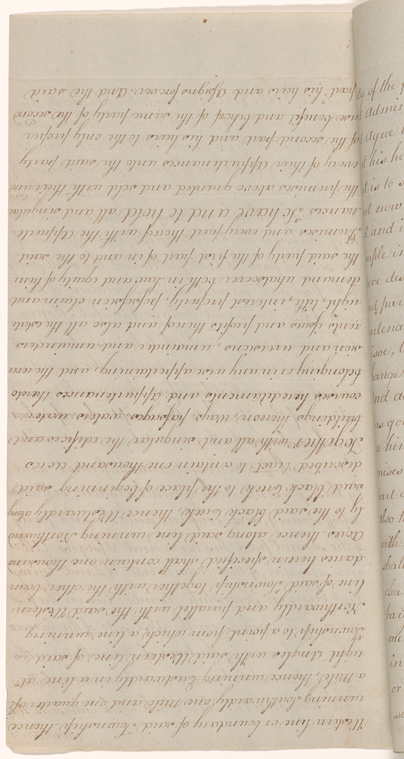 Western line or boundary of said Township, thence
running Southwardly one mile and one quarter of
a mile, thence running Eastwardly in a line at
right Angles with said Western line of said
Township to a point; from which, a line running
Northwardly and parallel with the said Western
line of said Township together with the other boun
daries herein specified shall contain one thousand
Acres thence along said line running Northward
ly to the said black Creek, thence Westwardly along
said black Creek to the place of beginning said
described tract to contain one thousand acres
Together with all and singular the edifices and
buildings thereon, Ways, passages, waters, water
courses hereditaments and appurtenances thereto
belonging or in any wise appertaining, and the rever
sion and reversions remainder and remainders
rents issues and profits thereof and also all the estate
right, title, interest property, possession claim and
demand whatsoever both in law and equity of them
the said party of the first part of in and to the said
Premises and every part thereof with the Appurte
nances To have and to hold all and singular
the premises above granted and sold with their and
every of their appurtenances unto the said party
of the second part and his heirs to the only proper
use benefit and behoof of the same party of the second
part his heirs and Assigns forever And the said